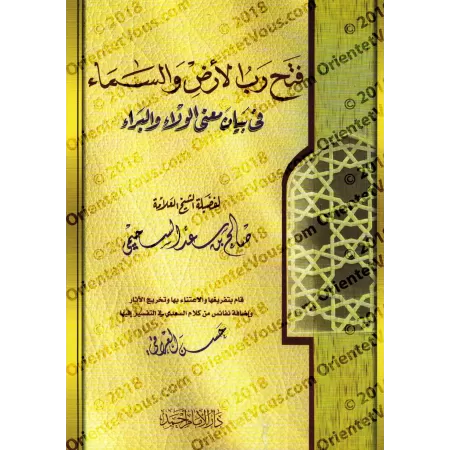 فتح رب الأرض والسماء
في بيان معنى الولاء والبراء
لفضيلة الشيخ العلامة
صالح بن سعد السحيمي
قام بتفريغها والاعتناء بها وتخريج الآثار
وإضافة نفائس من كلام السعدي في التفسير إليها
حسن العراقي
دار الإمام أحمد
© 2018
OrientetVous.com